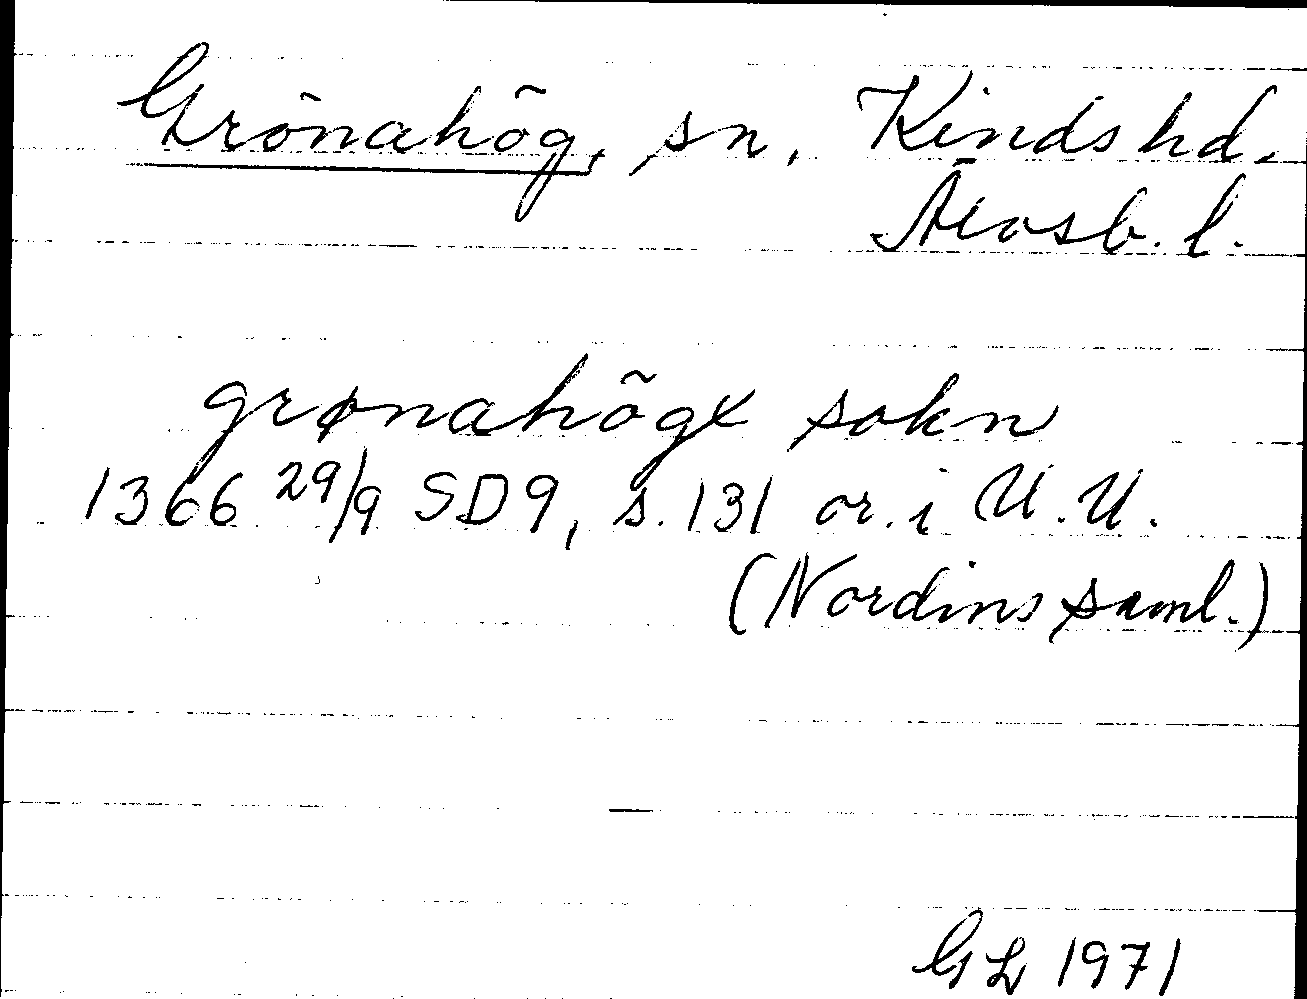 Grönahög, sn, Kinds hd.
Älvsb. l.
grønahögx sokn
1366 29/9 SD9, s. 131 or. i U.U.
(Nordins saml.)
GL 1971